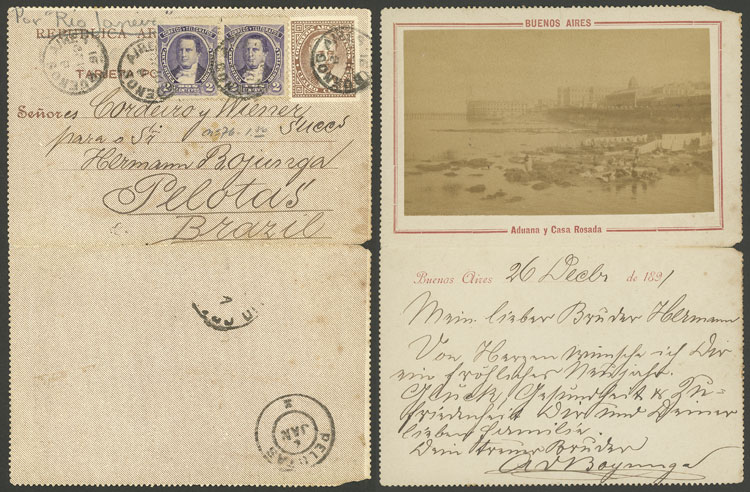 Por "Rio Janeiro"
REPUBLICA AR
TARJETA PO
CORREOS Y TELEGRAFOS
CORREOS Y TELEGRAFOS
2
2
BUENOS AIRES
BUENOS AIRES
BUENOS AIRES
Señores Cordeiro y Wiener
para o Sr Succs
Hermann Bojunga
Pelotas
Brazil
PELOTAS
JAN
BUENOS AIRES
Aduana y Casa Rosada
Buenos Aires 26 Decbr de 1891
Mein lieber Bruder Hermann
Von Herzen wünsche ich Dir
ein fröhliches Neujahr.
Glück, Gesundheit & Zu-
friedenheit Dir und Deiner
lieben Familie.
Dein treuer Bruder
Boyunga